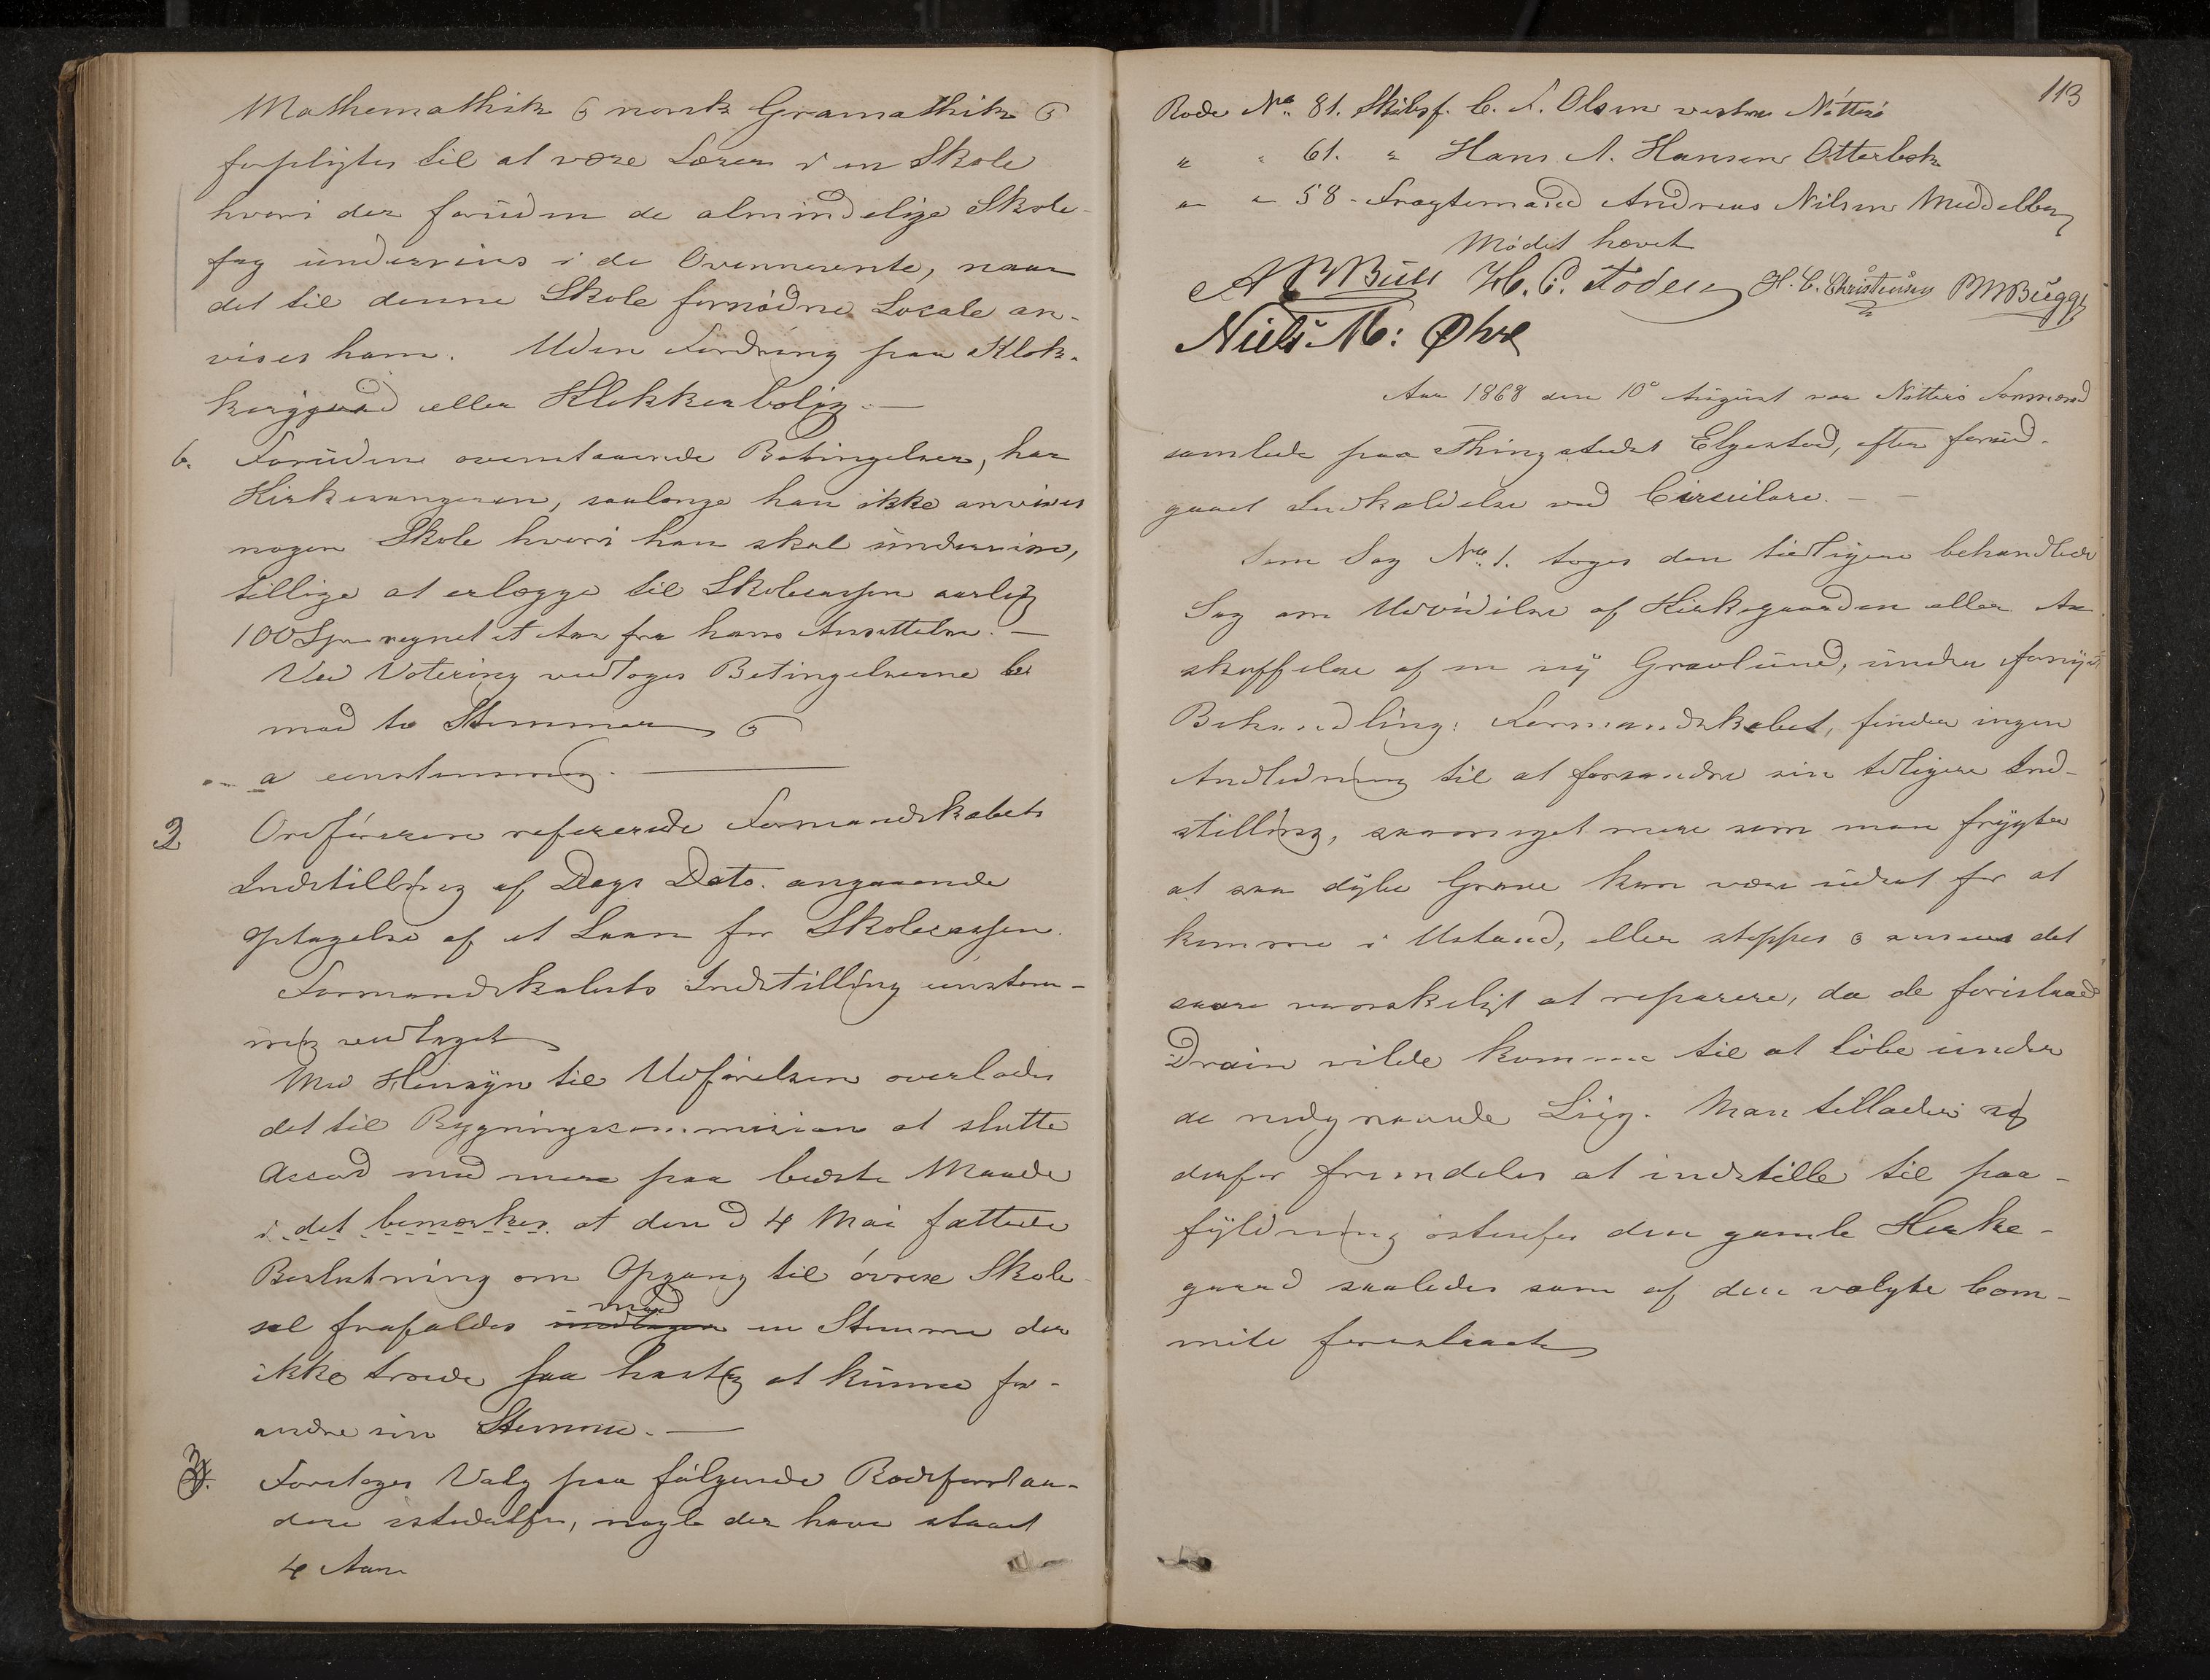 Mathemathik & norsk Gramathik &
forpligtes til at være Lærer i en Skole
hvori der foruden de almindelige Skole-
fag undervises i de Ovennevnte, naar
det til denne Skole fornødne Locale an-
vises ham. Uden Fordring paa Klok-
kergaard eller Klokkerbolig.—
b. Foruden ovenstaaende Betingelser, har
Kirkesangeren, saalænge han ikke anvises
nogen Skole hvori han skal undervise,
tillige at erlægge til Skolecassen aarlig
100 Spr regnet et Aar fra hans Ansættelse.—
Ved Votering vedtoges Betingelserne b
mod to Stemmer &
a eenstemmig.—
2 Ordføreren refererede Formandskabets
Indstilling af Dags Dato angaaende
Optagelse af et Laan for Skolecassen.
Formandskabets Indstilling eenstem-
mig vedtaget
Med Hensyn til Udførelsen overlades
det til Bygningscommission at slutte
Accord med mere paa bedste Maade
i det bemærkes at den d 4 Mai fattede
Beslutning om Opgang til øvre Skole-
sal frafaldes mod en Stemme der
ikke troede saa hastig at kunne for-
andre sin Stemme.—
3. Foretoges Valg paa følgende Rodeforstan-
dere istedetfor, nogle der have staaet
4 Aar
113
Rode No. 81. Skibsf. C. F. Olsen vestre Nøtterø
" " 61. " Hans A. Hansen Otterbek
" " 58 - Fragtemand Andreas Nilsen Meddelborg
Mødet hævet
H. C. Christensen P M Bugge
Niels M: Øhre
Aar 1868 den 10de August var Nøtterø Formænd
samlede paa Thingstedet Elgestad, efter forud-
gaaet Indkaldelse ved Circulare.— —
Som Sag No. 1. toges den tidligere behandlede
Sag om Udvidelse af Kirkegaarden eller An
skaffelse af en ny Gravlund, under fornyet
Behandling: Formandskabet, finder ingen
Anledning til at forandre sin tidligere Ind-
stilling, saameget mere som man frygter
at saa dybe Grave kan være udsat for at
komme i Ustand, eller stoppes & ansees det
saare vanskeligt at reparere, da de foreslaaede
Drain vilde komme til at løbe under
de nedgravede Liig. Man tillader sig
derfor fremdeles at indstille til paa-
fyldning østenfor den gamle Kirke-
gaard saaledes som af den valgte Com-
mite foreslaaet